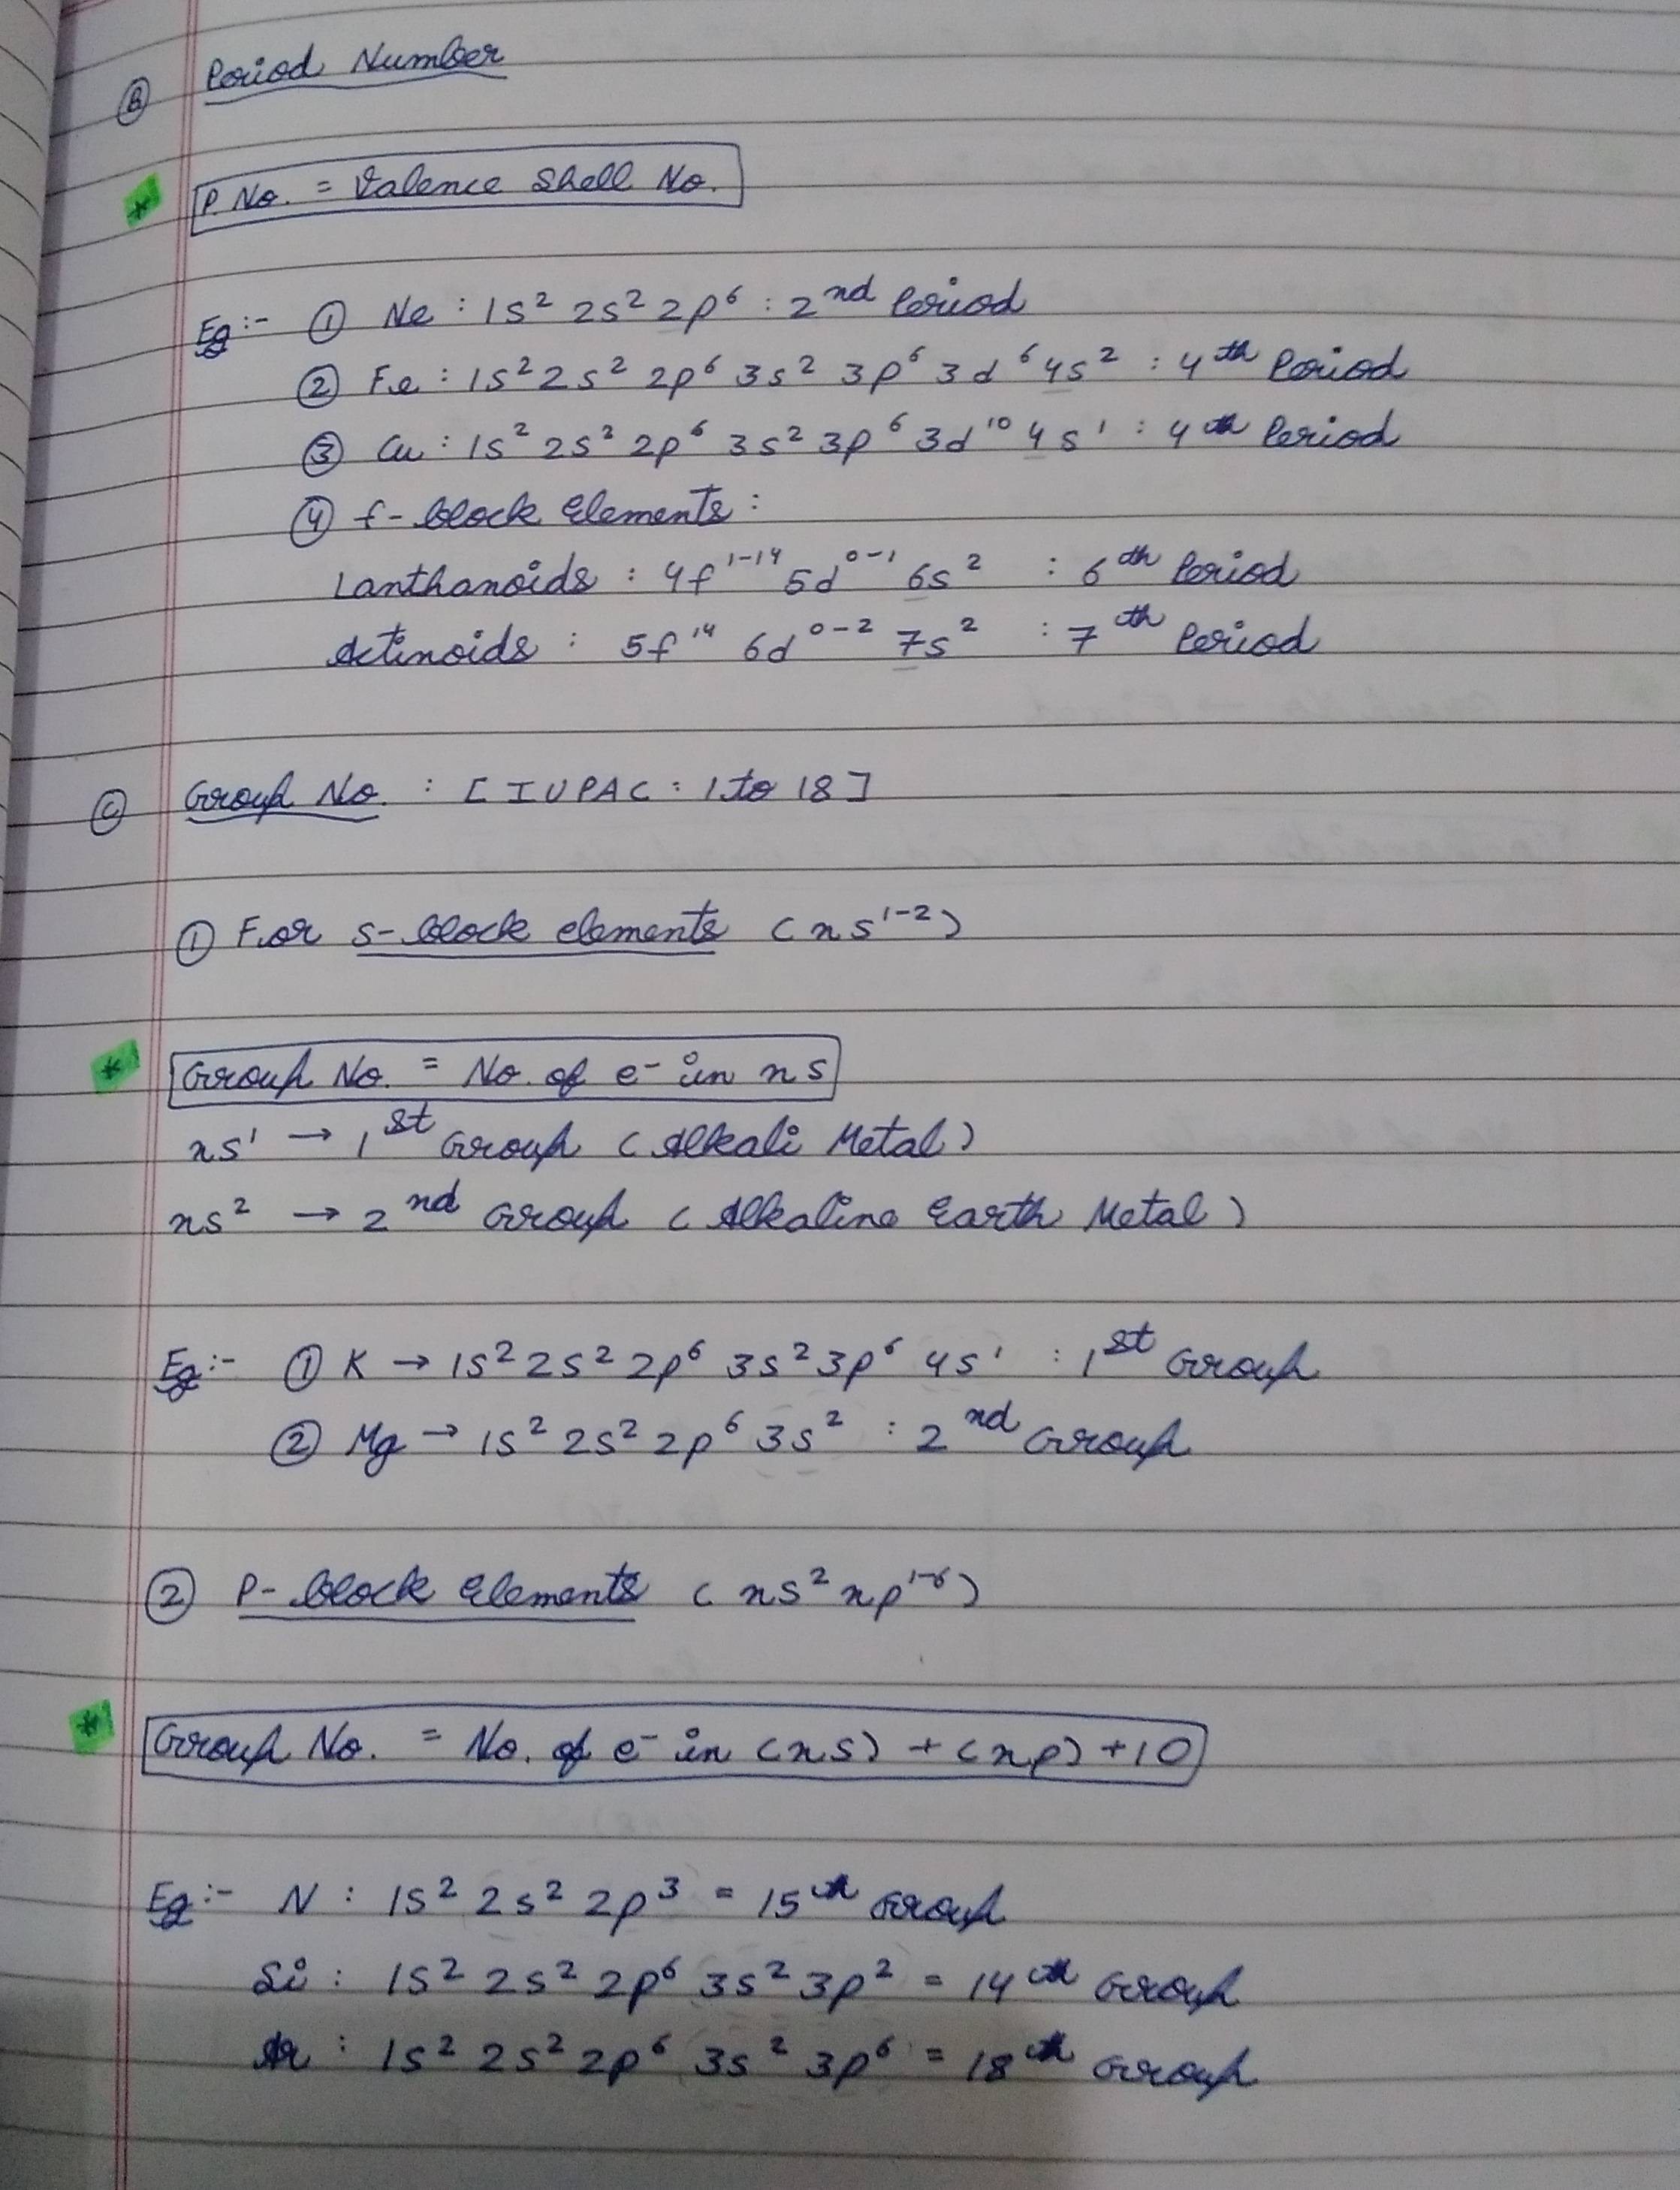 Ⓑ Period Number
* P. No. = Valence Shell No.
Eg :- ① Ne : 1s² 2s² 2p⁶ : 2ⁿᵈ Period
② Fe : 1s² 2s² 2p⁶ 3s² 3p⁶ 3d⁶ 4s² : 4ᵗʰ Period
③ Cu : 1s² 2s² 2p⁶ 3s² 3p⁶ 3d¹⁰ 4s¹ : 4ᵗʰ Period
④ f-block Elements :
Lanthanoids : 4f¹⁻¹⁴ 5d⁰⁻¹ 6s² : 6ᵗʰ Period
Actinoids : 5f¹⁴ 6d⁰⁻² 7s² : 7ᵗʰ Period
© Group No. : [IUPAC : 1 to 18]
① For s-block elements (ns¹⁻²)
* Group No. = No. of e⁻ in ns
ns¹ → 1ˢᵗ Group (Alkali Metal)
ns² → 2ⁿᵈ Group (Alkaline Earth Metal)
Eg :- ① K → 1s² 2s² 2p⁶ 3s² 3p⁶ 4s¹ : 1ˢᵗ Group
② Mg → 1s² 2s² 2p⁶ 3s² : 2ⁿᵈ Group
② P-block Elements (ns² np¹⁻⁶)
* Group No. = No. of e⁻ in (ns) + (np) + 10
Eg :- N : 1s² 2s² 2p³ = 15ᵗʰ Group
Si : 1s² 2s² 2p⁶ 3s² 3p² = 14ᵗʰ Group
Ar : 1s² 2s² 2p⁶ 3s² 3p⁶ = 18ᵗʰ Group